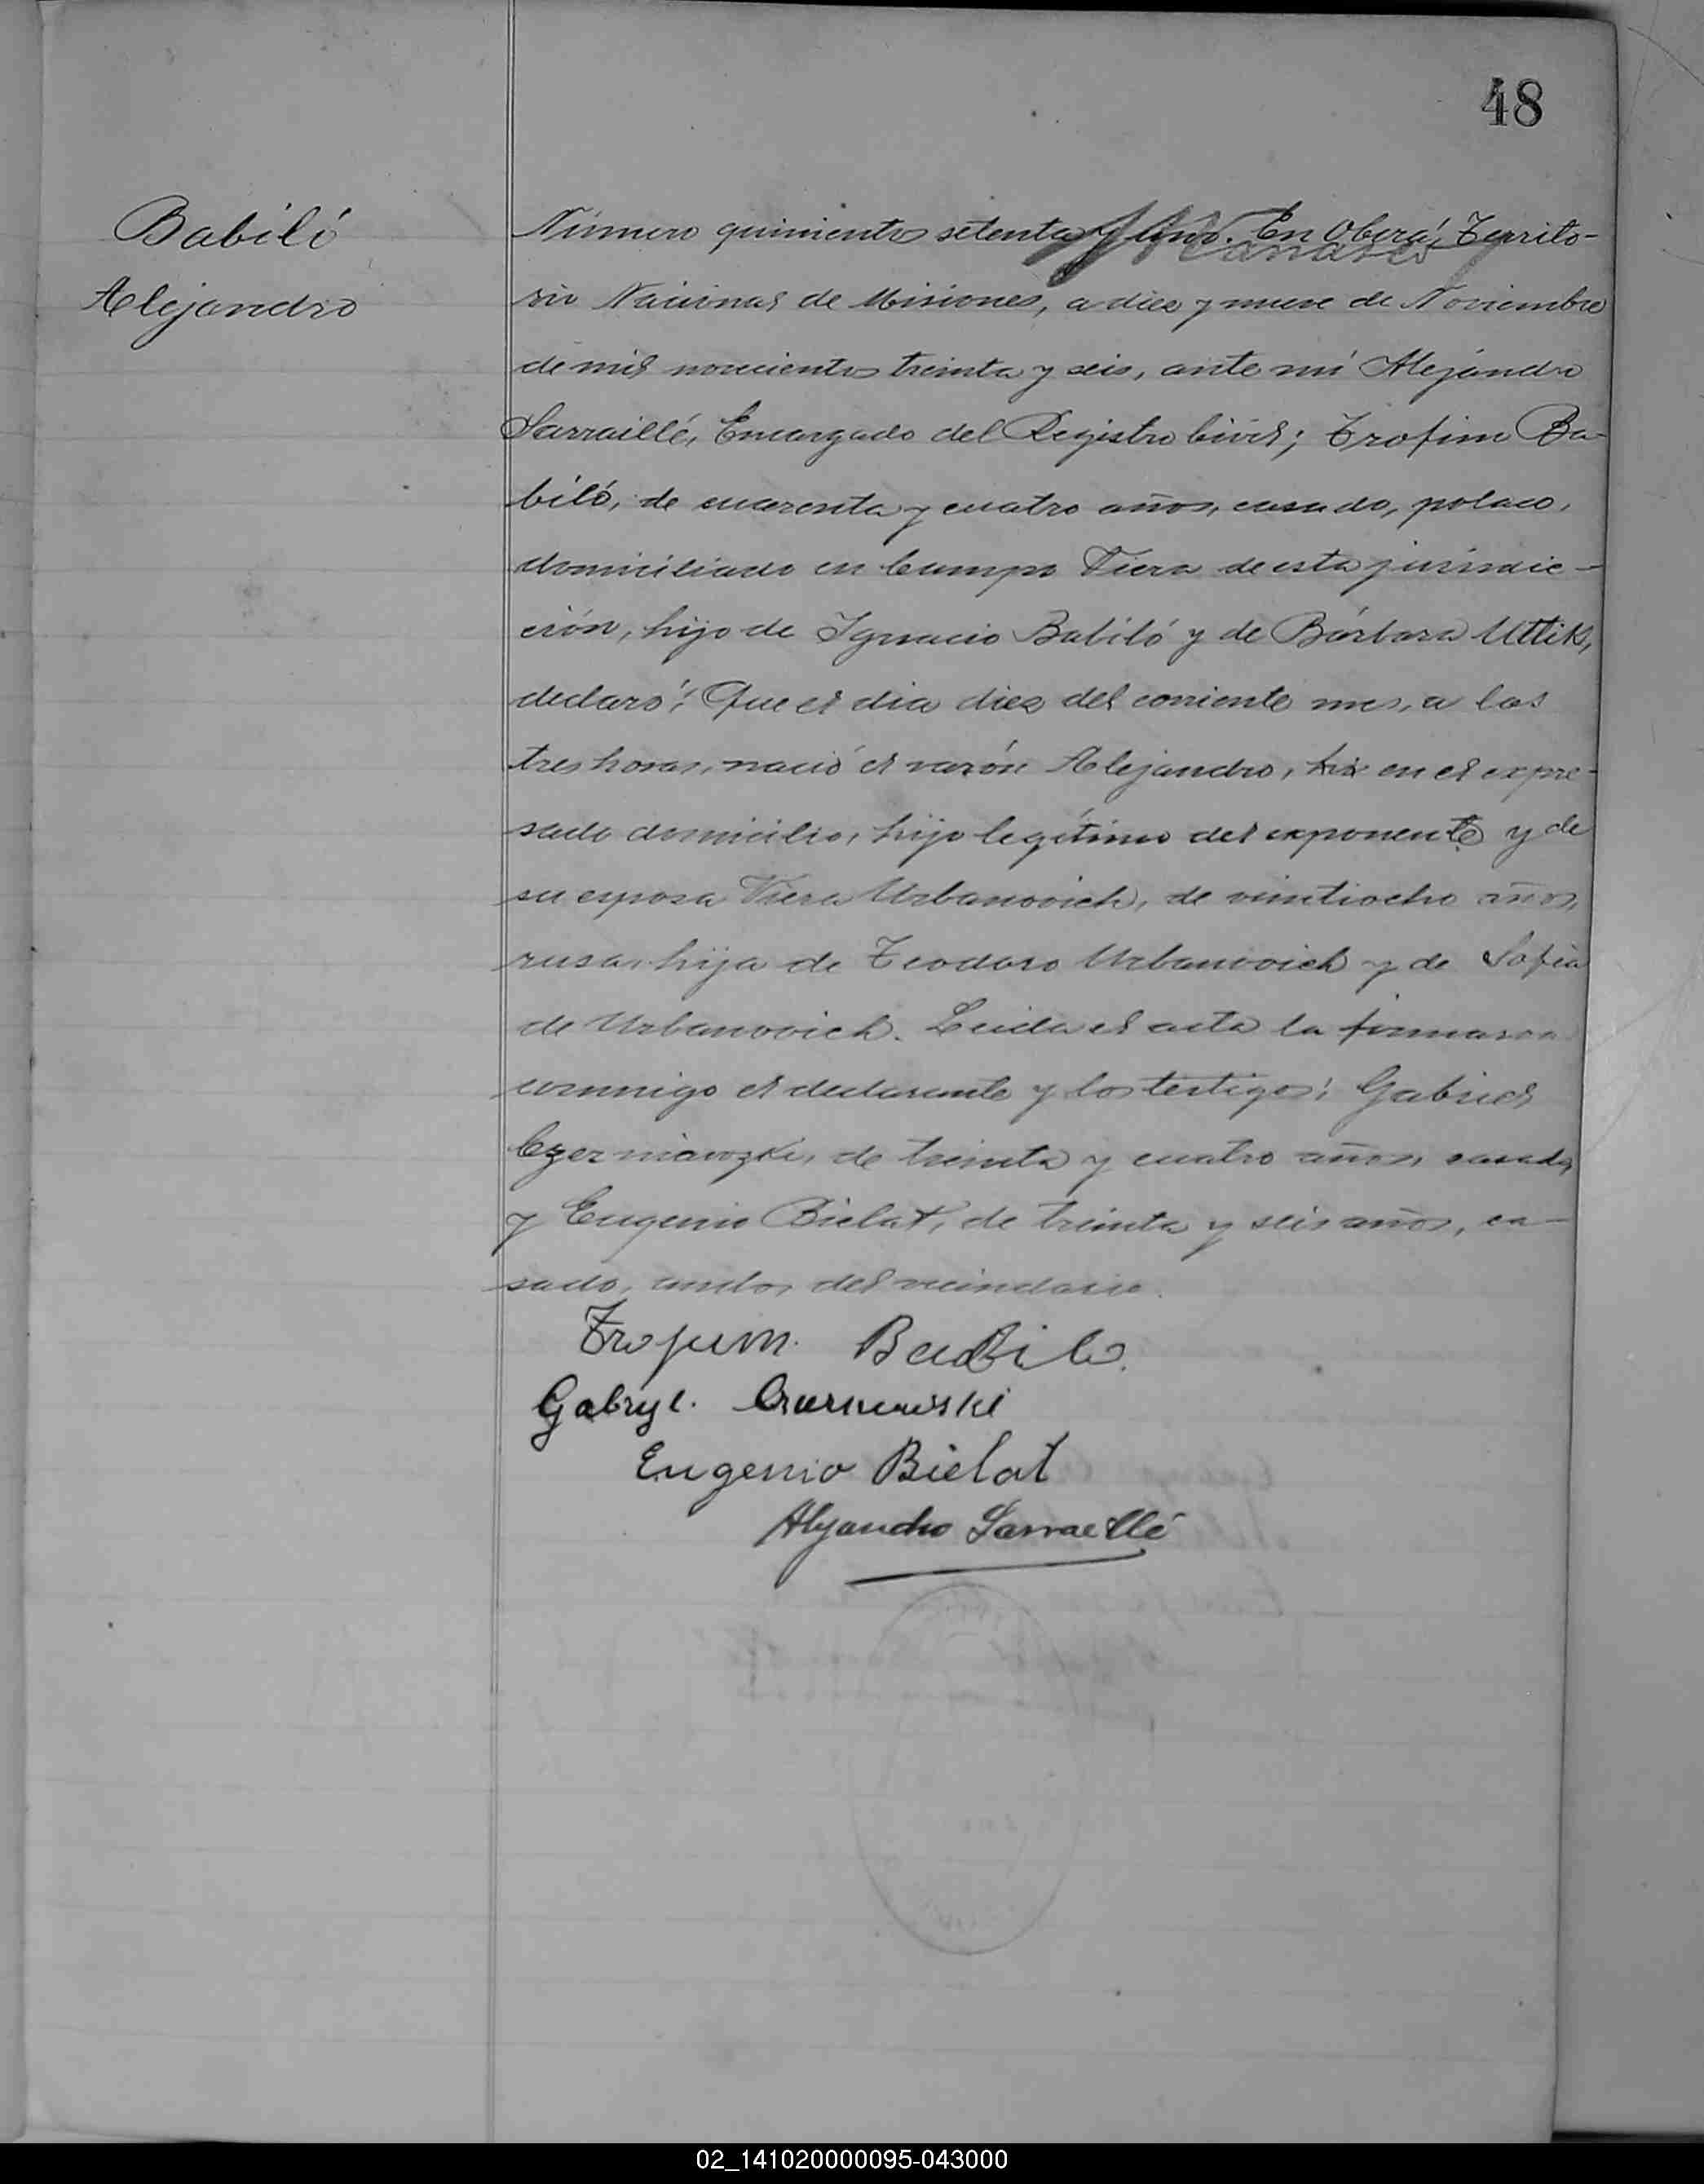 48
Babiló
Alejandro
Número quinientos setenta y uno. En Oberá, Territo-
rio Nacional de Misiones, a diez y nueve de Noviembre
de mil novecientos treinta y seis, ante mí Alejandro
Sarraillé, Encargado del Registro Civil; Trofim Ba-
biló, de cuarenta y cuatro años, casado, polaco,
domiciliado en Campo Viera de esta jurisdic-
ción, hijo de Ignacio Babiló y de Bárbara Uttiks,
declaró: Que el día diez del corriente mes, a las
tres horas, nació el varón Alejandro, en el expre-
sado domicilio, hijo legítimo del exponente y de
su esposa Viera Urbanovich, de veintiocho años,
rusa, hija de Teodoro Urbanovich y de Sofía
de Urbanovich. Leida el acta la firmaron
conmigo el declarante y los testigos: Gabriel
de treinta y cuatro años, casado,
y Eugenio Bielat, de treinta y seis años, ca-
sado, ambos del vecindario.
Trofim Babilo.
Gabryel.
Eugenio Bielat
Alejandro Sarraillé
02_141020000095-043000